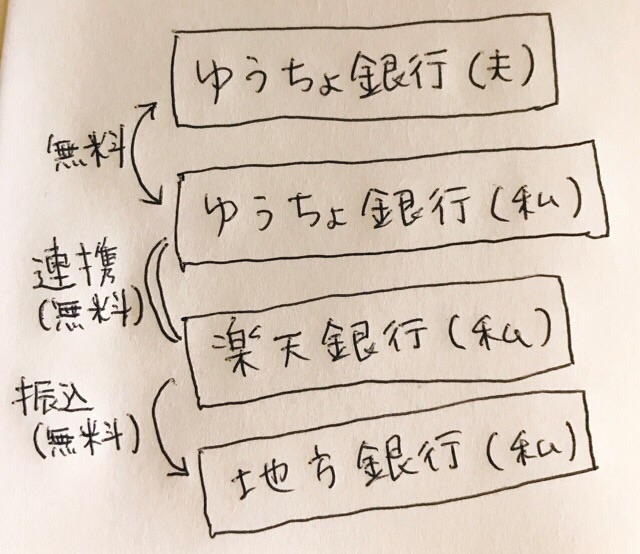 ゆうちょ銀行(夫)
無料
ゆうちょ銀行(私)
連携
(無料)
楽天銀行(私)
振込
(無料)
地方銀行(私)